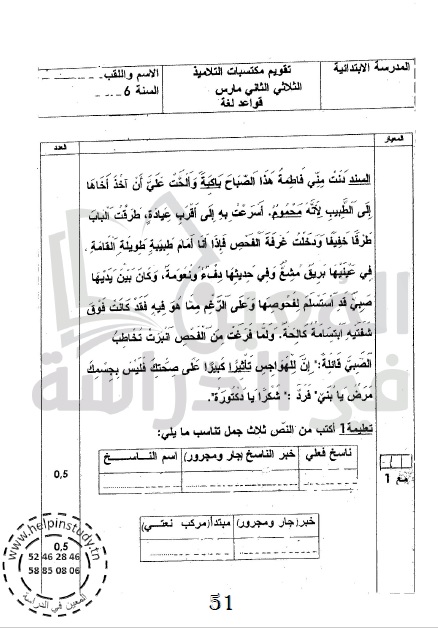 المدرسة الابتدائية
تقويم مكتسبات التلاميذ
الثلاثي الثاني مارس
قواعد لغة
الاسم واللقب
السنة 6
المعيار
العدد
السند دَنَتْ مِنِّي فَاطِمَةُ هَذَا الصَّبَاحَ بَاكِيَةً وَأَلَحَّتْ عَلَيَّ أَنْ آخُذَ أَخَاهَا
إِلَى الطَّبِيبِ لِأَنَّهُ مَحْمُومٌ. أَسْرَعْتُ بِهِ إِلَى أَقْرَبِ عِيَادَةٍ، طَرَقْتُ البَابَ
طَرْقًا خَفِيفًا وَدَخَلْتُ غُرْفَةَ الْفَحْصِ فَإِذَا أَنَا أَمَامَ طَبِيبَةٍ طَوِيلَةِ القَامَةِ.
فِي عَيْنَيْهَا بَرِيقٌ مُشِعٌّ وَفِي حَدِيثِهَا دِفْءٌ وَنُعُومَةٌ، وَكَانَ بَيْنَ يَدَيْهَا
صَبِيٌّ قَدِ اسْتَسْلَمَ لِفُحُوصِهَا وَعَلَى الرَّغْمِ مِمَّا هُوَ فِيهِ فَقَدْ كَانَتْ فَوْقَ
شَفَتَيْهِ ابْتِسَامَةٌ كَالِحَةٌ. وَلَمَّا فَرَغَتْ مِنَ الفَحْصِ انْبَرَتْ تُخَاطِبُ
الصَّبِيَّ قَائِلَةً:" إِنَّ لِلْهَوَاجِسِ تَأْثِيرًا كَبِيرًا عَلَى صِحَّتِكَ فَلَيْسَ بِجِسْمِكَ
مَرَضٌ يَا بُنَيَّ" فَرَدَّ :" شُكْرًا يَا دُكْتُورَةُ".
تعليمة1 أكتب من النّص ثلاث جمل تناسب ما يلي:
ناسخ فعلي
خبر الناسخ(جار ومجرور)
اسم الناسخ
مع 1
0,5
خبر(جار ومجرور)
مبتدأ(مركب نعتي)
0,5
www.helpinstudy.tn
52 46 28 46
58 85 08 06
المعين في الدراسة
51